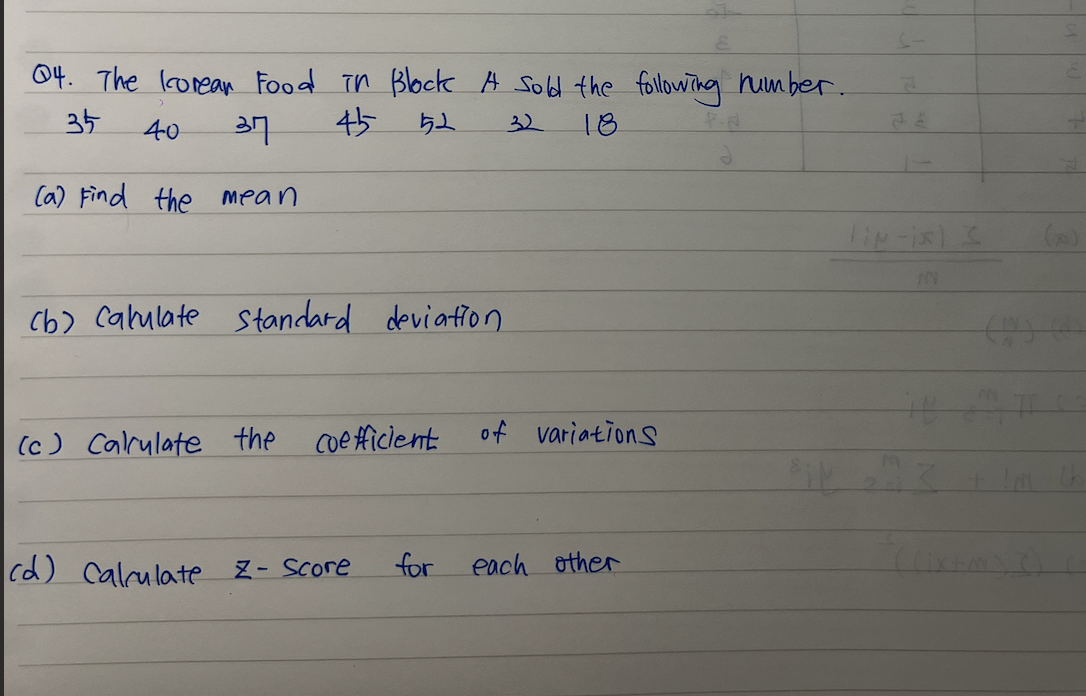 Q4. The Korean Food in Block A Sold the following number.
35 40 37 45 52 32 18
(a) Find the mean
(b) Calculate standard deviation
(c) Calculate the coefficient of variations
(d) Calculate z-score for each other